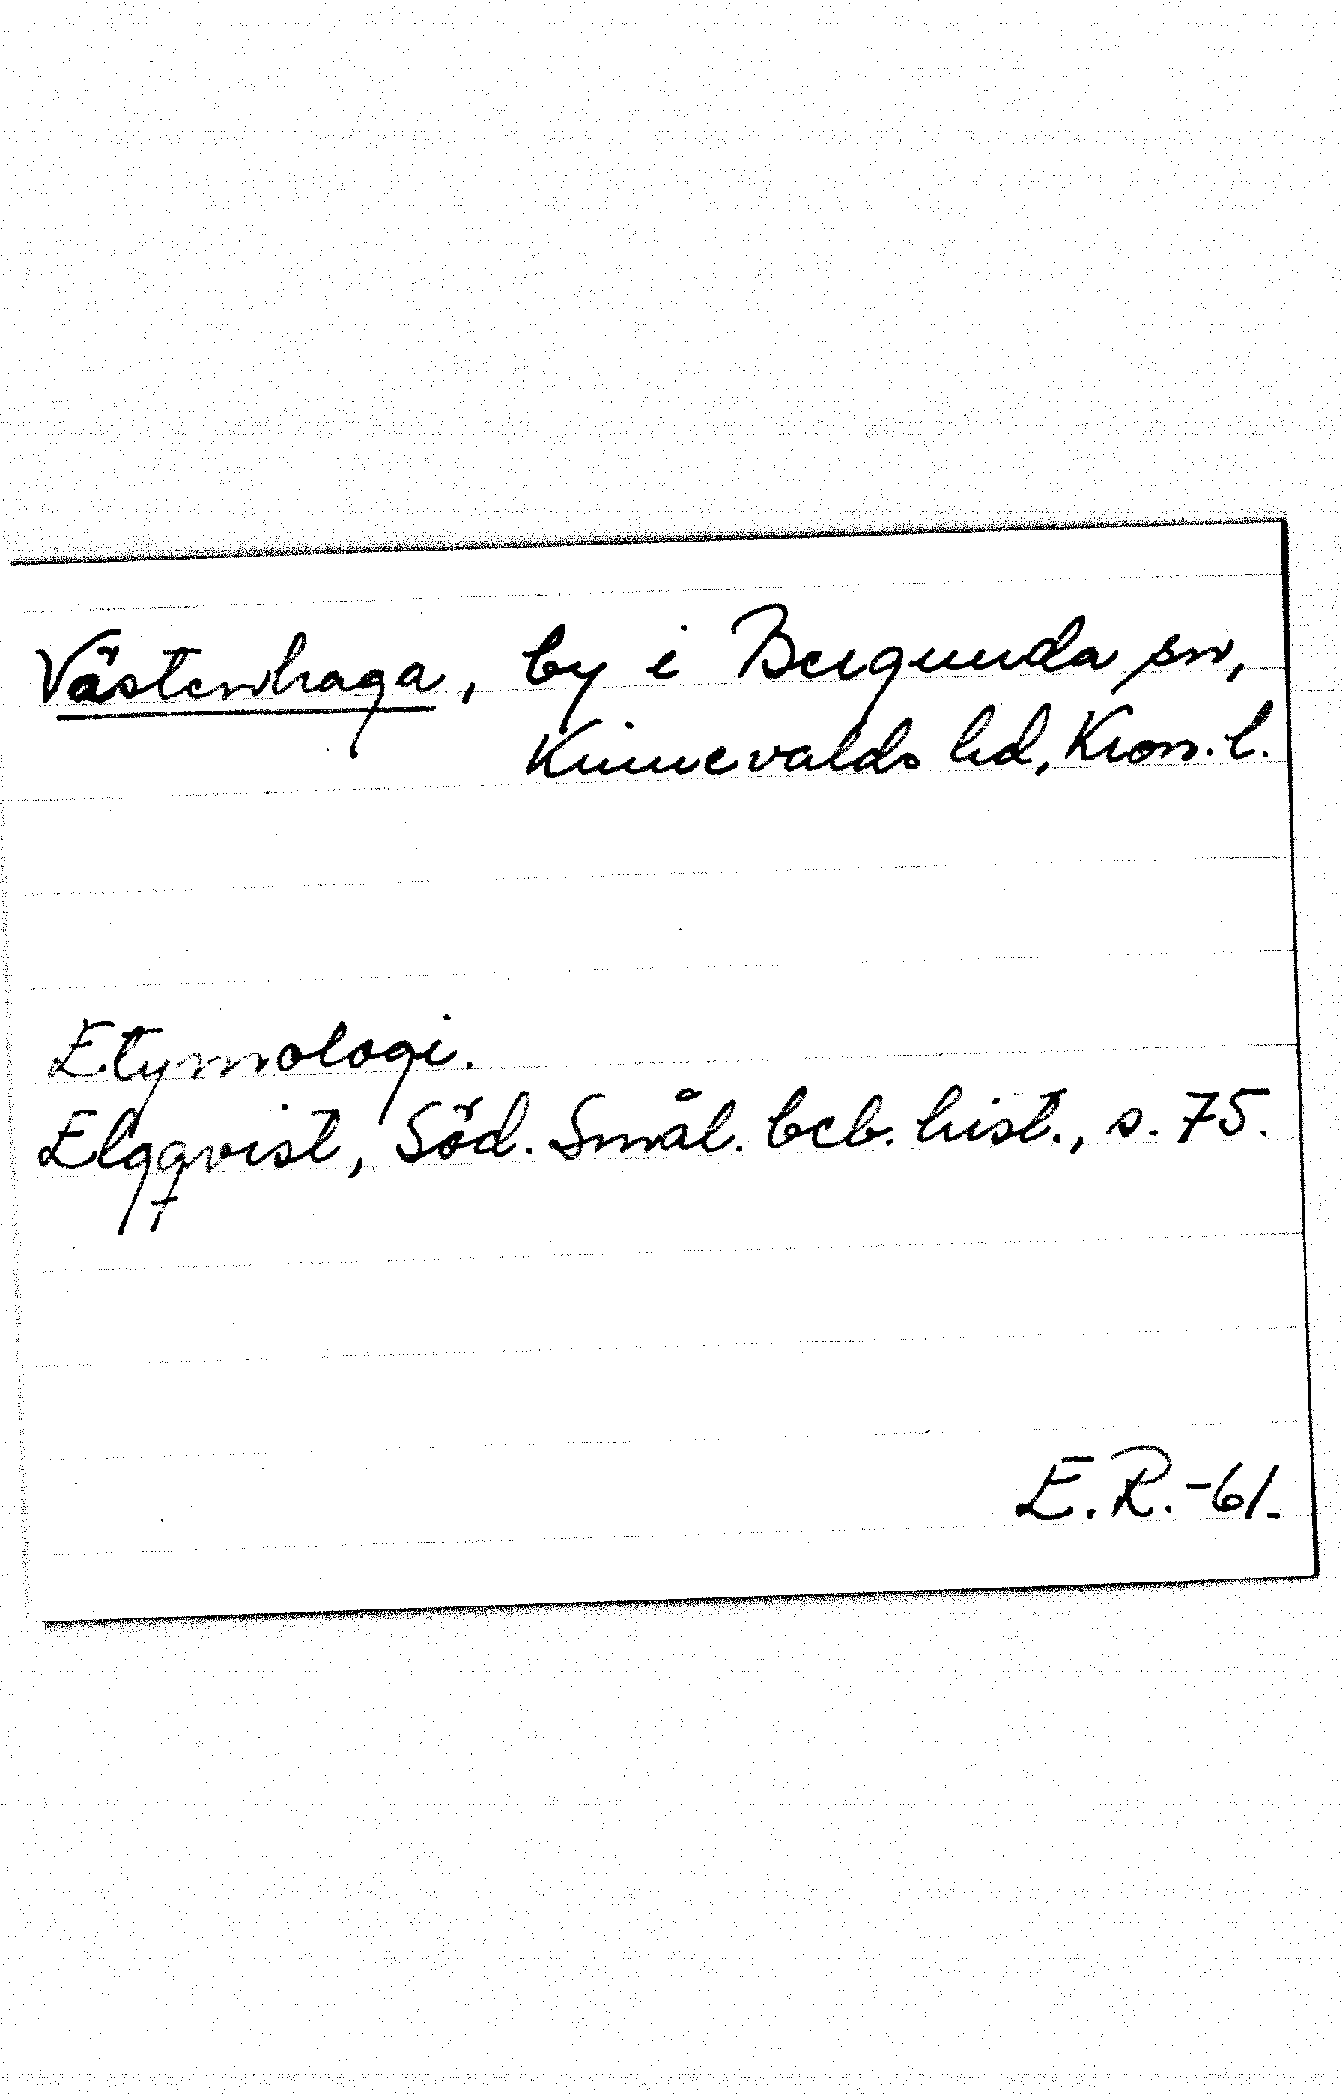 Västenhaga, by i Bergunda sn,
Kinnevalds hd, Kron. l.
Etymologi.
Elgqvist, Söd. Smål. beb. hist., s. 75.
E.R.-61.